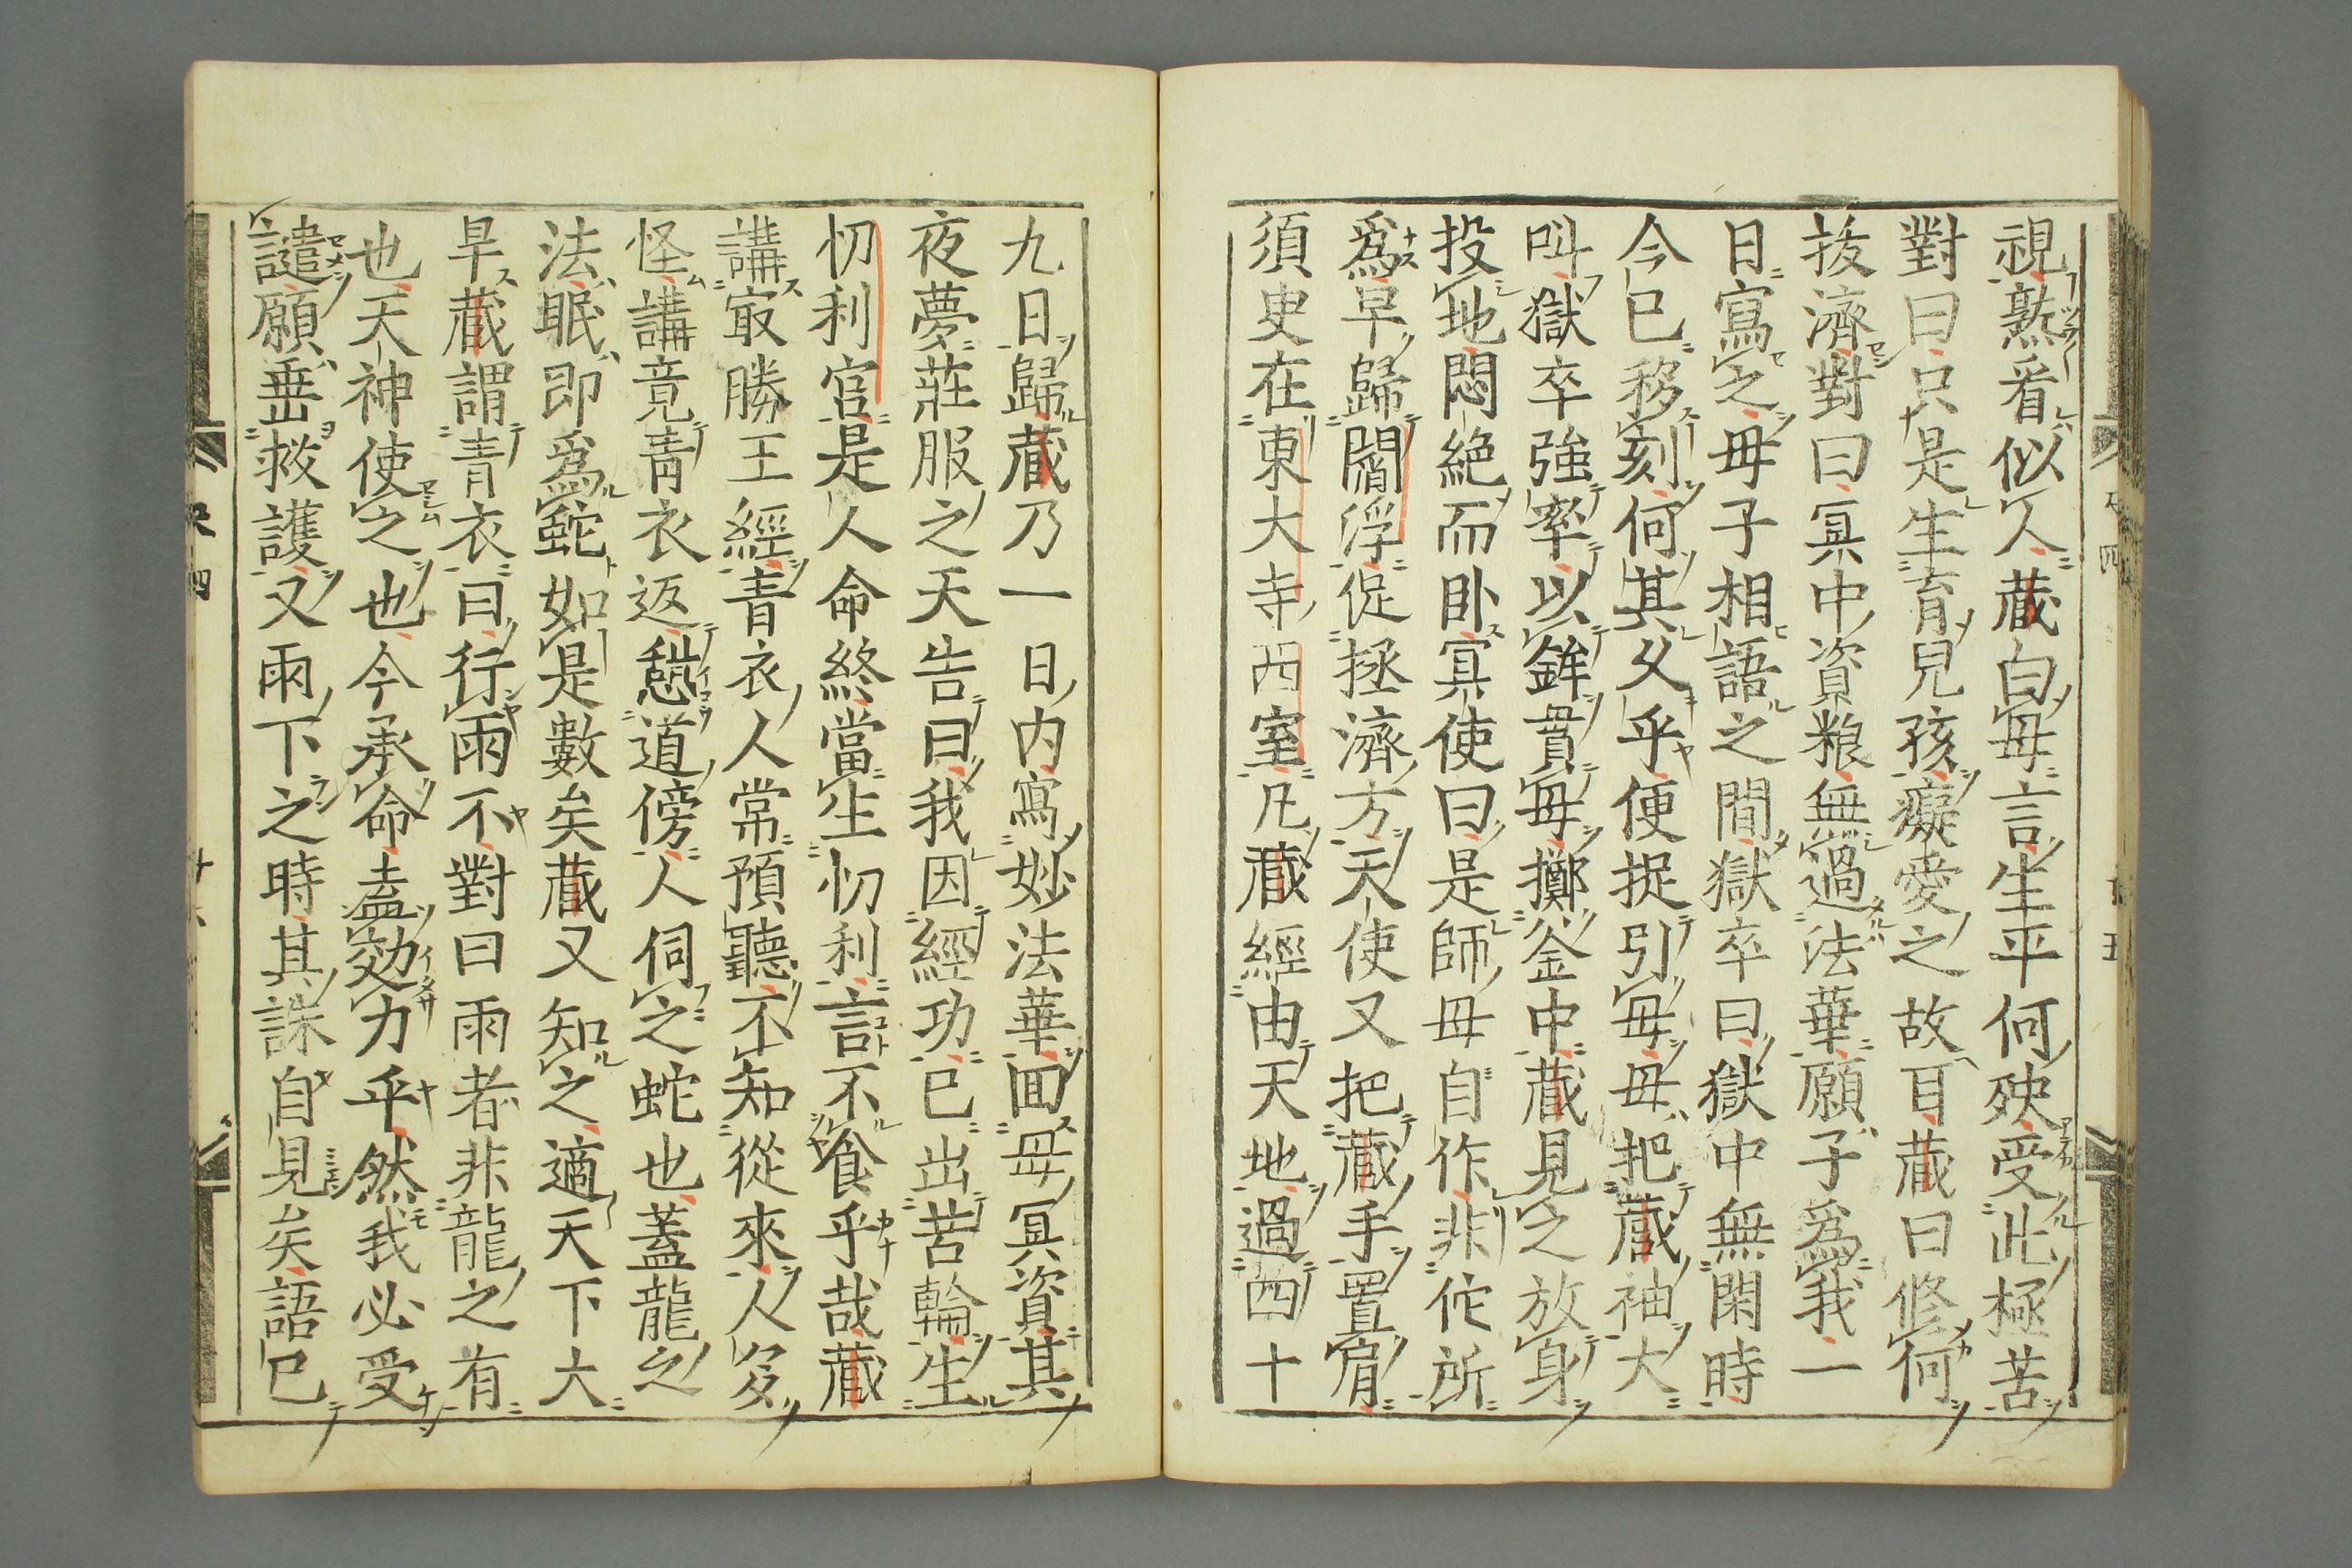 視熟看似人蔵白毋言生平何殃受此極苦
對曰只是生育兒孩癡愛之故耳蔵曰修何
拔濟對曰冥中資粮無過法華願子爲我一
日寫之毋子相語之間獄卒曰獄中無閑時
今已移刻何其父乎便捉引毋毋把蔵袖大
叫獄卒強牽以鉾貫毋擲釜中蔵見之放身
投地悶絶而卧冥使曰是師毋自作非佗所
爲早歸閻浮促拯濟方天使又把蔵手置肩
須史在東大寺西室凡蔵經由天地過四十
九日歸蔵乃一日内寫妙法華回毋冥資其
夜夢莊服之天告曰我因經功已出苦輪生
忉利官是人命終當生忉利言不食乎哉蔵
講㝡勝王經青衣人常預聽不知從來人多
怪講竟青衣返愁道傍人伺之蛇也蓋龍之
法眠即爲蛇如是數矣蔵又知之適天下大
旱蔵謂青衣曰行雨不對曰雨者非龍之有
也天神使之也今承命盍効力乎然我必受
譴願垂救護又雨下之時其誅自見矣語已